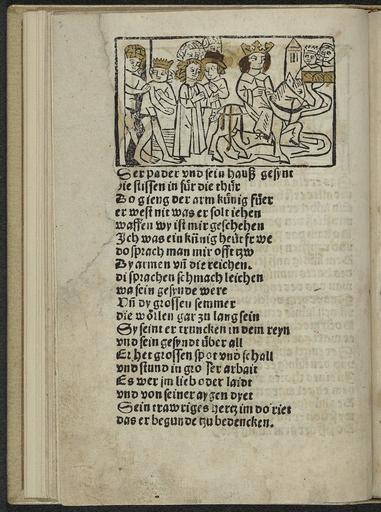 Der pader vnd sein hauß gesynt
die stissen in für die thür
Do gieng der arm künig füer
er west nit was er solt iehen
waffen wy ist mir geschehen
Jch was ein künig heür frwe
do sprach man mir offt tzw
Dy armen vñ die reichen.
di sprachen schmach leichen
wa sein gesynde were
Vñ dy grossen semmer
die wöllen gar zu lang sein
Sy seint er truncken in dem reyn
vnd sein gesyndt über all
Er het grossen spot vnd schall
vnd stund in grosser arbait
Es wer im lieb oder laidt
vnd von seiner aygen dyet
Sein trawriges hertz im do riet
das er begunde tzu bedencken.